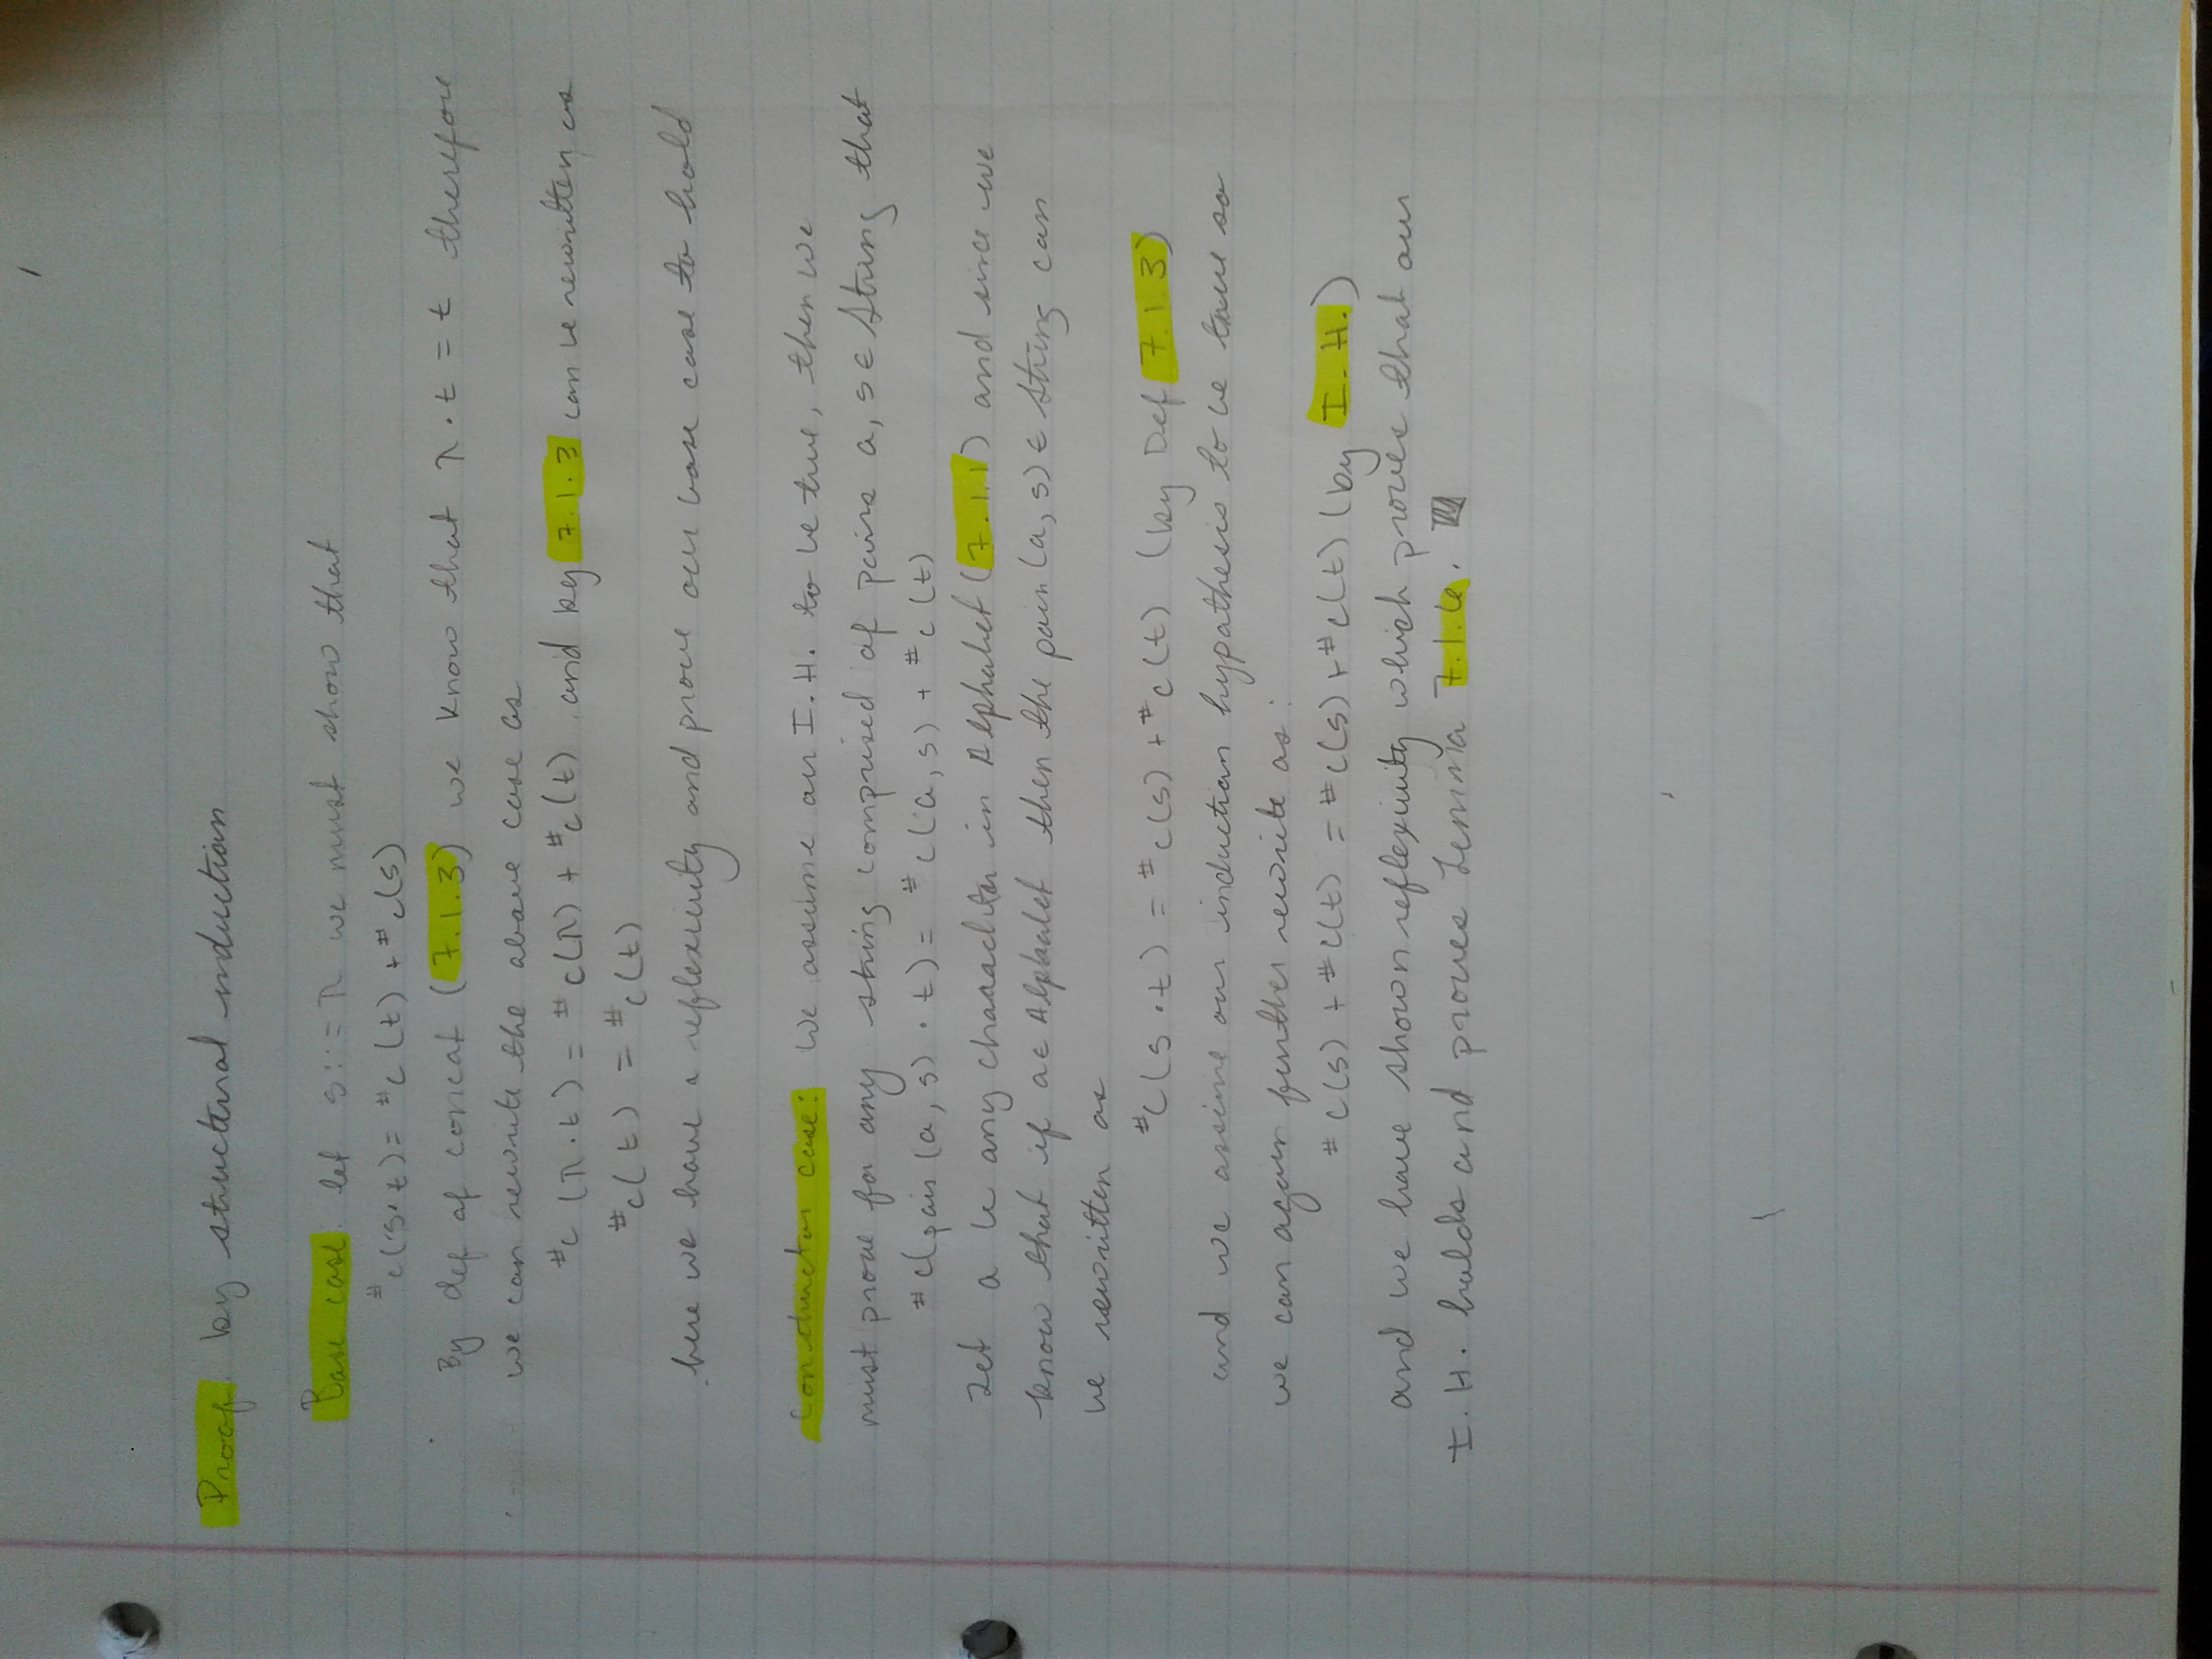 Proof. by structural induction
Base case: let s::= λ we must show that
#c(s·t) = #c(t) + #c(s)
By def of concat (7.1.3) we know that λ·t = t therefore
we can rewrite the above case as
#c(λ·t) = #c(λ) + #c(t) and by 7.1.3 can be rewritten as
#c(t) = #c(t)
here we have a reflexivity and prove our base case to hold
Constructor case: We assume our I.H. to be true, then we
must prove for any string comprised of pairs a, s ∈ String that
#c(pair (a, s) · t) = #c(a, s) + #c(t)
Let a be any character in Alphabet (7.1.1) and since we
know that if a ∈ Alphabet then the pair (a, s) ∈ String can
be rewritten as
#c(s·t) = #c(s) + #c(t) (by Def 7.1.3)
and we assume our induction hypothesis to be true so
we can again further rewrite as:
#c(s) + #c(t) = #c(s) + #c(t) (by I.H.)
and we have shown reflexivity which proves that our
I.H. holds and proves Lemma 7.1.6.